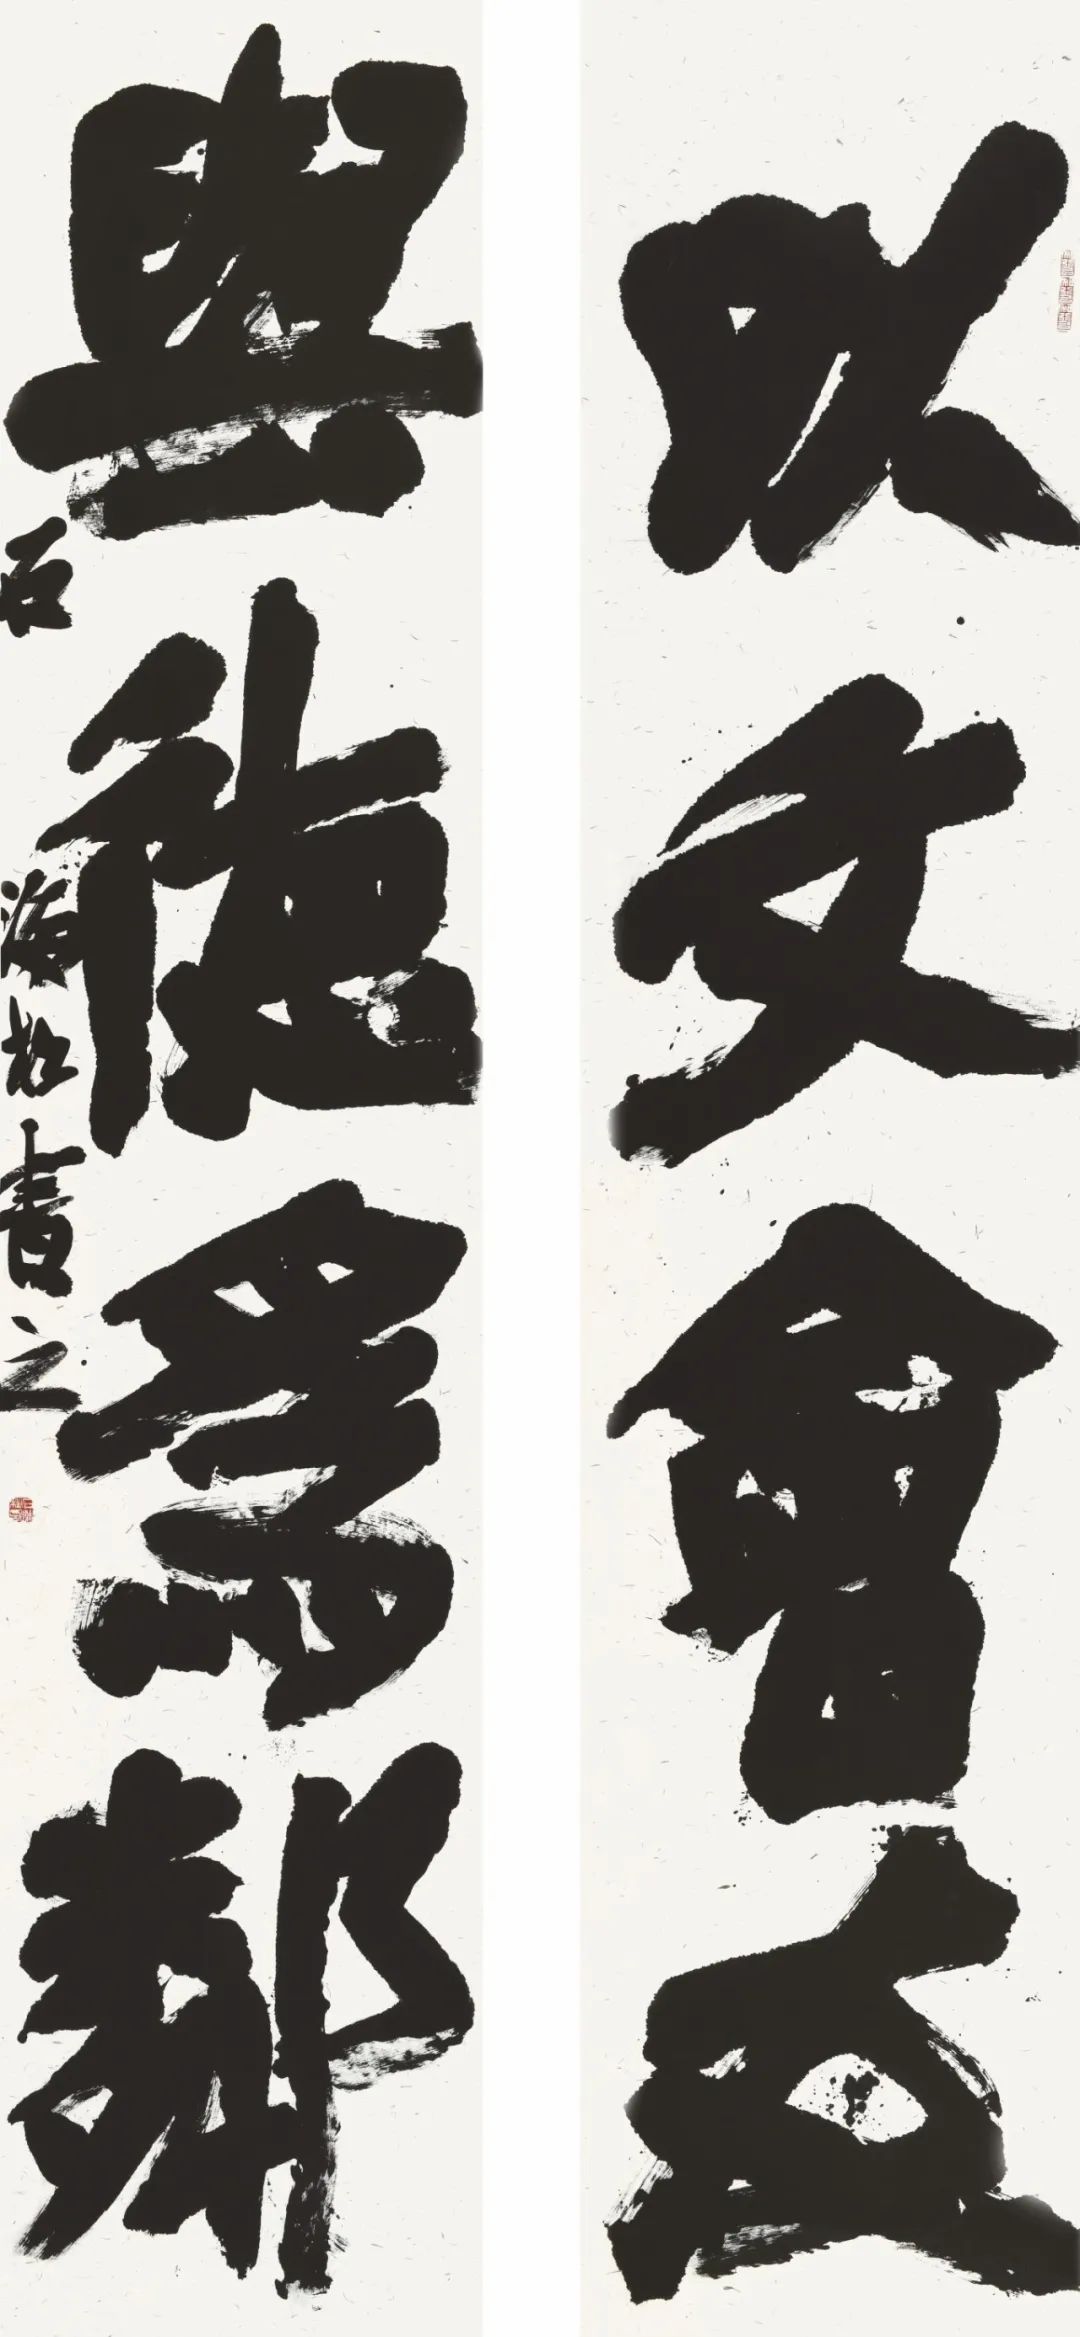 以文會友
與德爲鄰
石海松書之